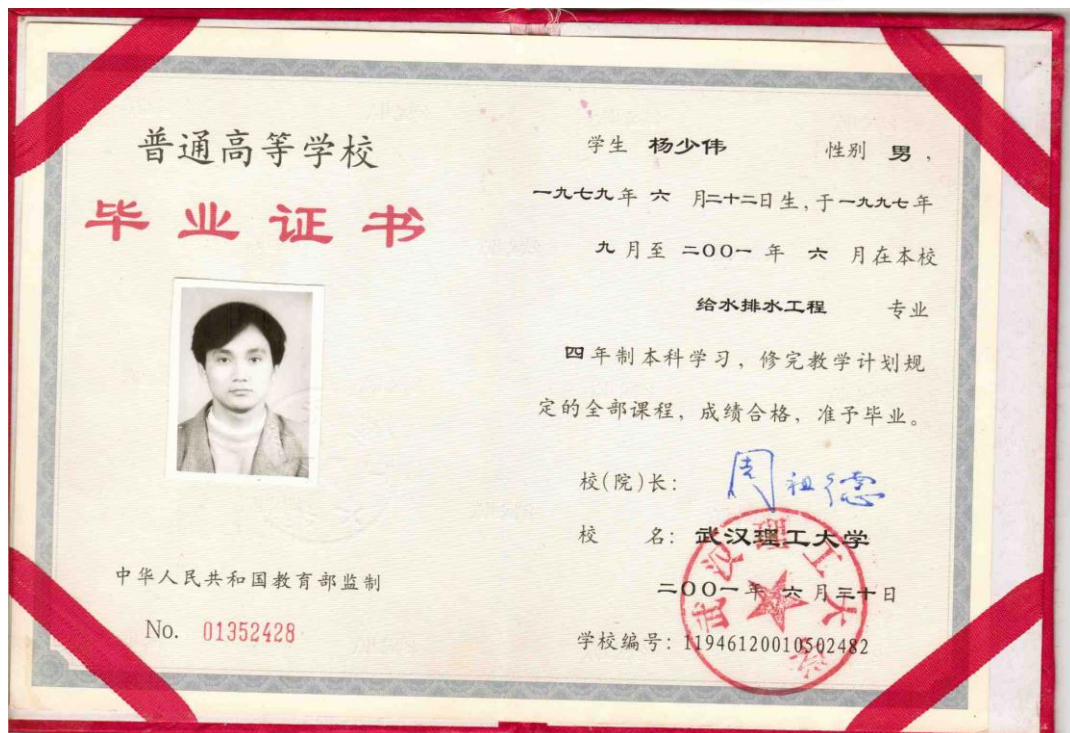 普通高等学校
毕业证书
中华人民共和国教育部监制
No. 01352428
学生 杨少伟 性别 男，
一九七九年 六 月二十二日生，于一九九七年
九 月至 二〇〇一 年 六 月在本校
给水排水工程 专业
四年制本科学习，修完教学计划规
定的全部课程，成绩合格，准予毕业。
校(院)长： 周祖德
校 名： 武汉理工大学
二〇〇一年 六 月三十日
学校编号：11946120010502482
武汉理工大学